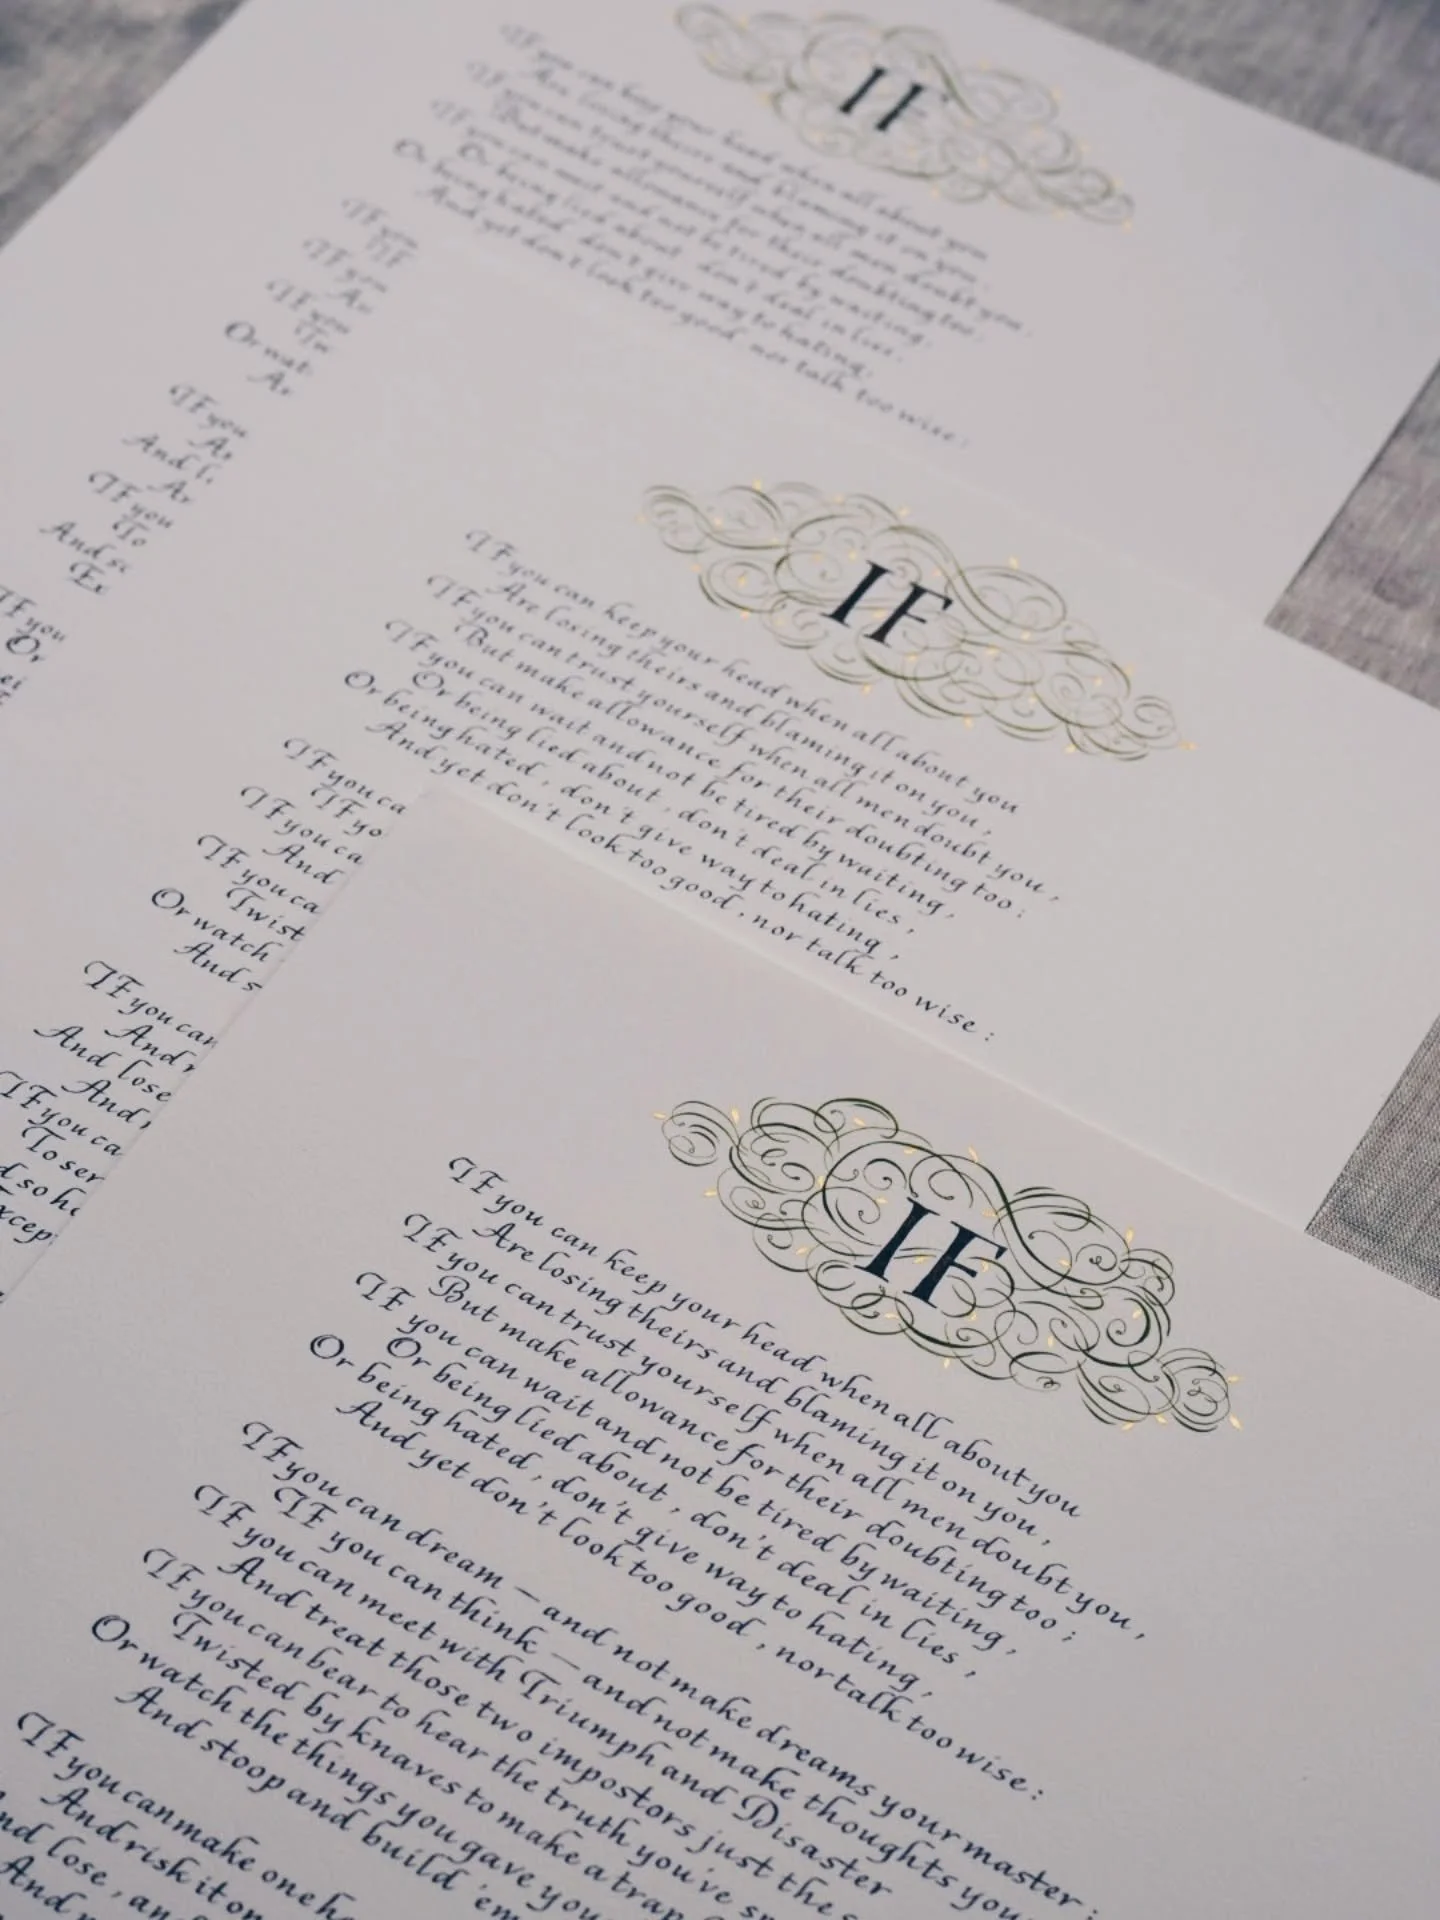 IF
IF you can keep your head when all about you
Are losing theirs and blaming it on you
IF you can trust yourself when all men doubt you,
But make allowance for their doubting too:
IF you can wait and not be tired by waiting,
Or being lied about, don't deal in lies,
Or being hated, don't give way to hating,
And yet don't look too good, nor talk too wise:
IF you
IF
IF you
IF you
Or wat
IF you
And l
IF you
To
And so
Ex
IF you
Or
IF
IF you can keep your head when all about you
Are losing theirs and blaming it on you,
IF you can trust yourself when all men doubt you,
But make allowance for their doubting too:
IF you can wait and not be tired by waiting,
Or being lied about, don't deal in lies,
Or being hated, don't give way to hating,
And yet don't look too good, nor talk too wise:
IF you ca
IF yo
IF you ca
And
IF you ca
Twist
Or watch
And s
IF you can
And r
And lose
And
IF you ca
To ser
d so ho
xcep
IF
IF you can keep your head when all about you
Are losing theirs and blaming it on you,
IF you can trust yourself when all men doubt you,
But make allowance for their doubting too;
IF you can wait and not be tired by waiting,
Or being lied about, don't deal in lies,
Or being hated, don't give way to hating,
And yet don't look too good, nor talk too wise:
IF you can dream — and not make dreams your master:
IF you can think — and not make thoughts you
IF you can meet with Triumph and Disaster
And treat those two impostors just the s
IF you can bear to hear the truth you've sp
Twisted by knaves to make a trap
Or watch the things you gave you
And stoop and build 'em
IF you can make one h
And risk it on
nd lose, and
And